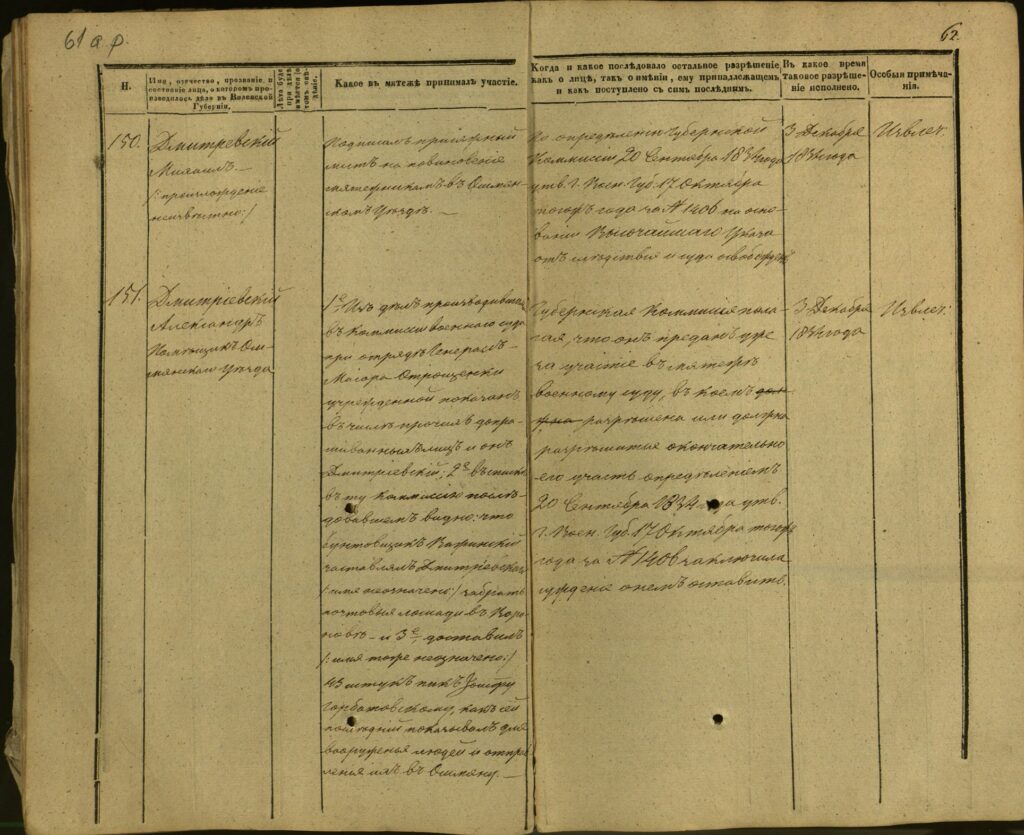 61 а. р.
62.
Н.
Имя, отечество, прозваніе и
состояніе лица, о которомъ про-
изводилось дѣло въ Виленской
Губерніи.
Какое въ мятежѣ принималъ участіе.
Когда и какое послѣдовало остальное разрѣшеніе
какъ о лицѣ, такъ о имѣніи, ему принадлежащемъ
и какъ поступлено съ симъ послѣднимъ.
Въ какое время
таковое разрѣше-
ніе исполнено.
Особыя примѣча-
нія.
150.
Дмитревскій
Михаилъ
/:происхожденіе
неизвѣстно:/
Подписалъ присяжный
листъ на повиновеніе
мятежникамъ въ Ошмян-
скомъ Уѣздѣ. —
По опредѣленію Губернской
Коммисіи 20 Сентября 1834 года
утв. Г. Воен. Губ. 17 Октября
тогожъ года за № 1406 на осно-
ваніи Высочайшаго Указа
отъ слѣдствія и суда освобожденъ
3 Декабря
1834 года
Извлеч:
151.
Дмитріевскій
Александръ
Помѣщикъ Ош-
мянскаго Уѣзда
1е Изъ дѣлъ производившихся
въ Коммисіи военнаго суда
при отрядѣ Генералъ-
Маіора Отрощенки
учрежденной показанъ
въ числѣ прочихъ допра-
шиванныхъ лицъ и онъ
Дмитріевскій; 2е въ
въ ту Коммисію послѣ-
видно: что
бунтовщикъ
заставлялъ Дмитріевскаго
/:имя неозначено:/ забрать
почтовыя лошади въ
и 3е, доставилъ
/:имя тоже неозначено:/
45 штукъ пикъ
Горбатовскому, какъ сей
послѣдній показывалъ для
вооруженья людей и отпра-
ленья ихъ въ Ошмяну. —
Губернская Коммисія пола-
гая, что онъ преданъ уже
за участіе въ мятежѣ
военному суду, въ коемъ
разрѣшена или должна
разрѣшится окончательно
его участь опредѣленіемъ
20 Сентября 1834 года утв.
Г. Воен. Губ. 17 Октября тогожъ
года за № 1406 заключила
сужденіе о немъ оставить.
3 Декабря
1834 года
Извлеч: